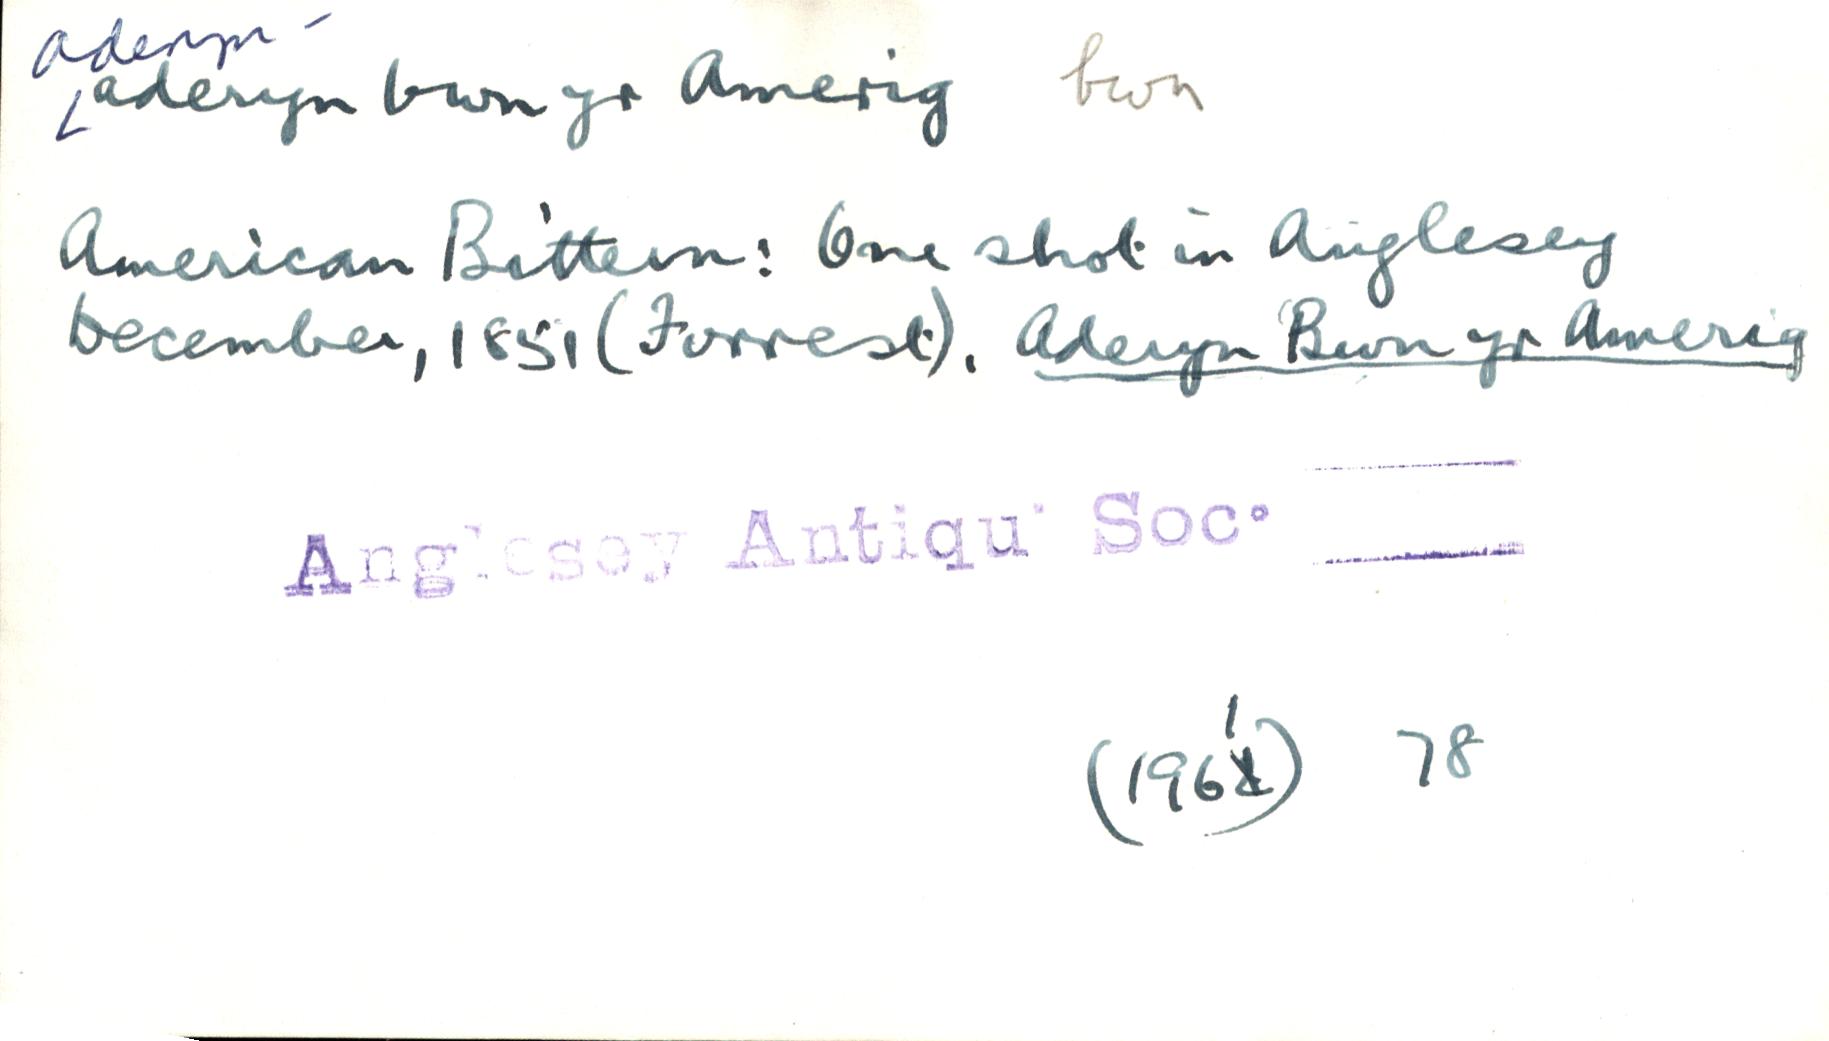 aderyn -
aderyn bwn yr Amerig bwn
American Bittern: One shot in Anglesey
December, 1851 (Forrest). Aderyn Bwn yr Amerig
Anglesey Antiqu. Soc.
(1961) 78